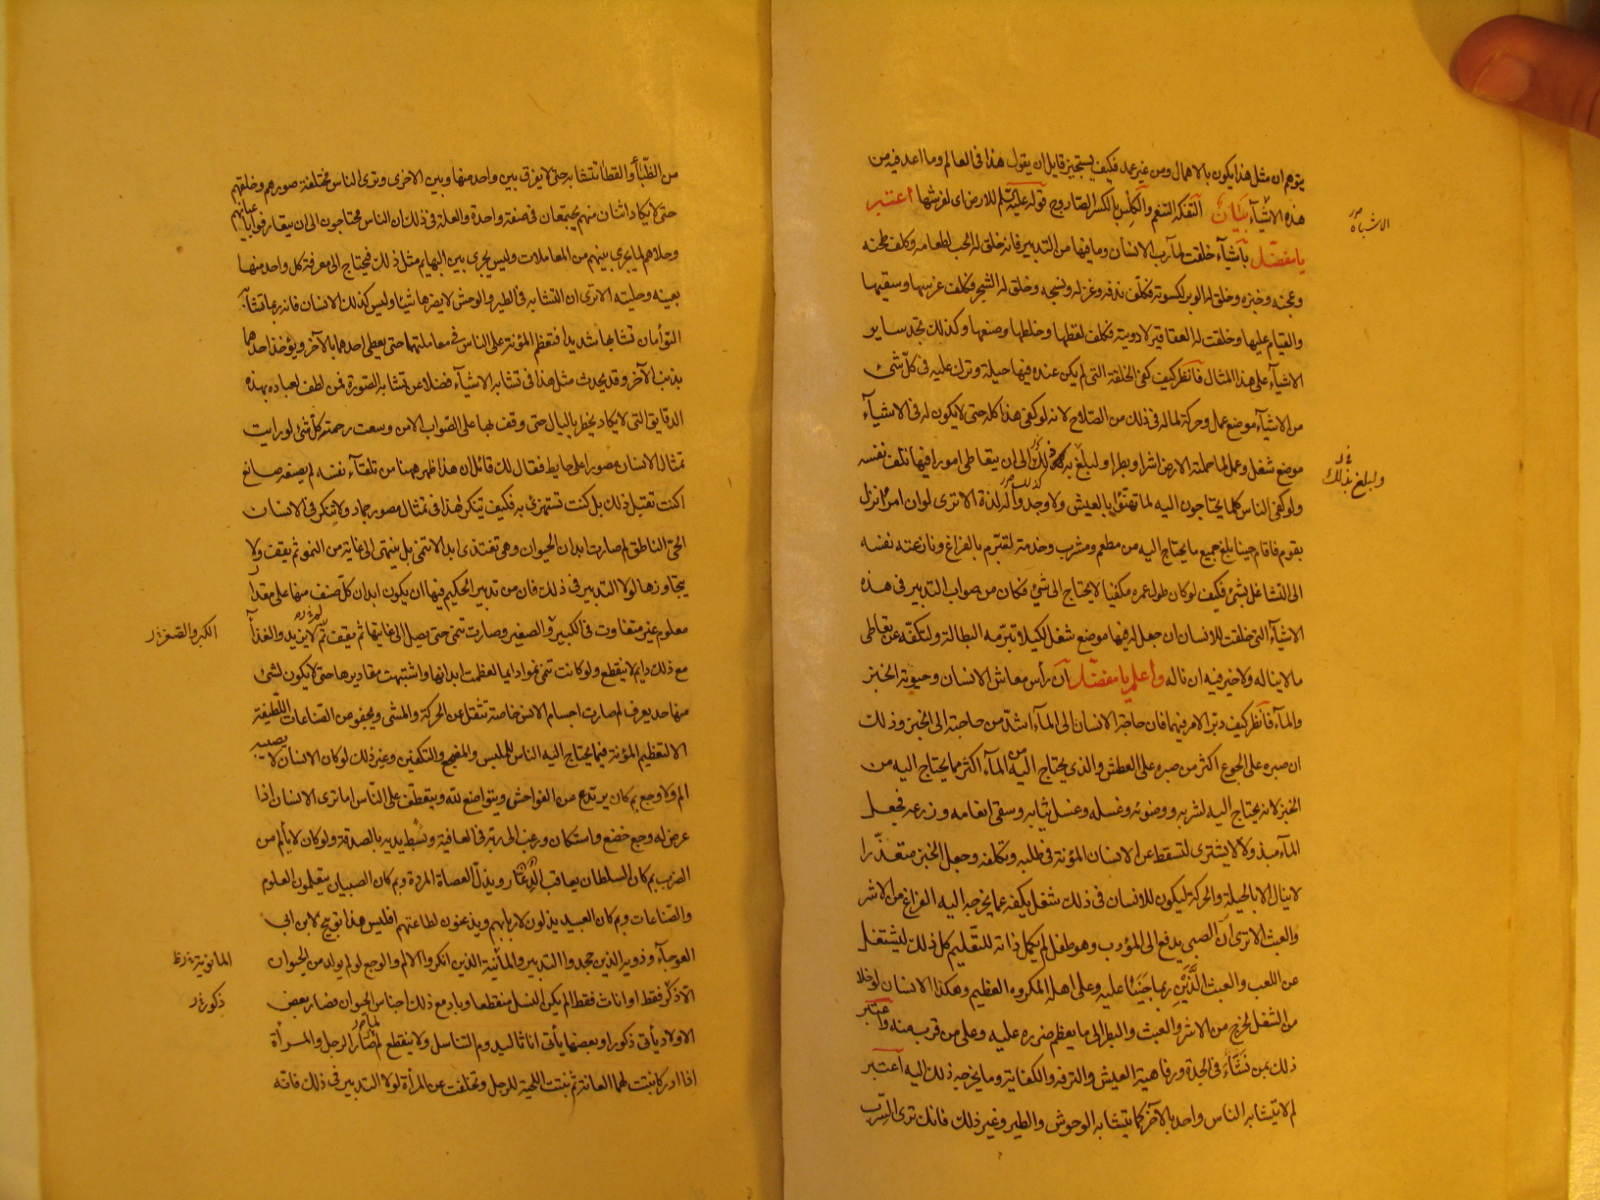 يتوهم ان مثل هذا يكون بالاهمال ومن غير عمد فكيف يستجيز قايل ان يقول هذا فى العالم وما اعد فيه من
هذه الاشيآء بيان التفكه التنعم والكلس بالكسر الصاروج قوله عليه السلم للارض اى لفرشها اعتبر
الاشباه
يا مفضل بأشيآء خلقت لمآرب الانسان وما فيها من التدبير فانه خلق له الحب لطعامه وكلف طحنه
وعجنه وخبزه وخلق له الوبر لكسوته فكلف ندفه وغزله ونسجه وخلق له الشجر فكلف غرسها وسقيها
والقيام عليها وخلقت له العقاقير لادويته فكلف لقطها وخلطها وصنعها وكذلك تجد ساير
الاشيآء على هذا المثال فانظر كيف كفى الخلقة التى لم يكن عنده فيها حيلة وترك عليه فى كل شئ
من الاشيآء موضع عمل وحركة لما له فى ذلك من الصلاح لانه لو كفى هذا كله حتى لا يكون له فى الاشيآء
موضع شغل وعمل لما حملته الارض اشرا وبطرا ولبلغ به ذلك الى ان يتعاطى امورا فيها تلف نفسه
ولبلغ بذلك
ولو كفى الناس كلما يحتاجون اليه لما تهنؤا بالعيش ولا وجدوا له لذة الا ترى لو ان امرأ نزل
بقوم فاقام حينا بلغ جميع ما يحتاج اليه من مطعم ومشرب وخدمة لتبرم بالفراغ ونازعته نفسه
الى التشاغل بشئ فكيف لو كان طول عمره مكفيا لا يحتاج الى شئ فكان من صواب التدبير فى هذه
الاشيآء التى خلقت للانسان ان جعل له فيها موضع شغل لكيلا تبرمه البطالة ولتكفه عن تعاطى
ما لا يناله ولا خير فيه ان ناله واعلم يا مفضل ان رأس معاش الانسان وحيوته الخبز
والمآء فانظر كيف دبر الامر فيهما فان حاجة الانسان الى المآء اشد من حاجته الى الخبز وذلك
ان صبره على الجوع اكثر من صبره على العطش والذى يحتاج اليه من المآء اكثر مما يحتاج اليه من
الخبز لانه يحتاج اليه لشربه ووضوئه وغسله وغسل ثيابه وسقى انعامه وزرعه فجعل
المآء مبذولا لا يشترى لتسقط عن الانسان المؤنة فى طلبه وتكلفه وجعل الخبز متعذرا
لا ينال الا بالحيلة والحركة ليكون للانسان فى ذلك شغل يكفه عما يخرجه اليه الفراغ من الاشر
والعبث الا ترى ان الصبى يدفع الى المؤدب وهو طفل لم يكمل ذاته للتعليم كل ذلك ليشتغل
عن اللعب والعبث الذين ربما جنيا عليه وعلى اهله المكروه العظيم وهكذا الانسان لو خلا
من الشغل لخرج من الاشر والعبث والبطر الى ما يعظم ضرره عليه وعلى من قرب منه واعتبر
ذلك بمن نشأ فى الجدة ورفاهية العيش والترفه والكفاية وما يخرجه ذلك اليه اعتبر
لم لا يتشابه الناس واحد بالآخر كما يتشابه الوحوش والطير وغير ذلك فانك ترى السرب
من الظبآء والقطا تتشابه حتى لا يفرق بين واحد منها وبين الاخرى وترى الناس مختلفة صورهم وخلقهم
حتى لا يكاد اثنان منهم يجتمعان فى صفة واحدة والعلة فى ذلك ان الناس محتاجون الى ان يتعارفوا باعيانهم
وحلاهم لما يجرى بينهم من المعاملات وليس يجرى بين البهايم مثل ذلك فيحتاج الى معرفة كل واحد منها
بعينه وحليته الا ترى ان التشابه فى الطير والوحش لا يضرها شيئا وليس كذلك الانسان فانه ربما تشابه
التوأمان تشابها شديدا فتعظم المؤنة على الناس فى معاملتهما حتى يعطى احدهما بالآخر ويؤخذ احدهما
بذنب الآخر وقد يحدث مثل هذا فى تشابه الاشيآء فضلا عن تشابه الصورة فمن لطف لعباده بهذه
الدقايق التى لا يكاد يخطر بالبال حتى وقف بها على الصواب الا من وسعت رحمته كل شئ لو رايت
تمثال الانسان مصورا على حايط فقال لك قائل ان هذا ظهر ههنا من تلقآء نفسه لم يصنعه صانع
اكنت تقبل ذلك بل كنت تستهزئ به فكيف تنكر هذا فى تمثال مصور جماد ولا تنكر فى الانسان
الحى الناطق لم صارت ابدان الحيوان وهى تغتذى ابدا لا تنمى بل ينتهى الى غاية من النمو ثم يقف ولا
يتجاوزها لولا التدبير فى ذلك فان من تدبير الحكيم فيها ان يكون ابدان كل صنف منها على مقدار
معلوم غير متفاوت فى الكبير والصغير وصارت تنمى حتى يصل الى غايتها ثم يقف ثم لا يزيد والغذآء
الكبر والصغر
مع ذلك دايم لا ينقطع ولو كانت تنمى نموا دايما لعظمت ابدانها واشتبهت مقاديرها حتى لا يكون لشئ
منها حد يعرف لم صارت اجسام الانس خاصة تثقل عن الحركة والمشى ويجفو عن الصناعات اللطيفة
الا لتعظيم المؤنة فيما يحتاج اليه الناس للملبس والمضجع والتكفين وغير ذلك لو كان الانسان لا يصيبه
الم ولا وجع بم كان يرتدع عن الفواحش ويتواضع لله ويتعطف على الناس اما ترى الانسان اذا
عرض له وجع خضع واستكان ورغب الى ربه فى العافية وبسط يديه بالصدقة ولو كان لا يألم من
الضرب بم كان السلطان يعاقب الدعار ويذل العصاة المردة وبم كان الصبيان يتعلمون العلوم
والصناعات وبم كان العبيد يذلون لاربابهم ويذعنون لطاعتهم افليس هذا توبيخ لابن ابى
العوجآء وذويه الذين جحدوا التدبير والمانية الذين انكروا الالم والوجع لو لم يولد من الحيوان
المانوية
الا ذكر فقط او اناث فقط الم يكن النسل منقطعا وباد مع ذلك اجناس الحيوان فصار بعض
ذكور
الاولاد يأتى ذكورا وبعضها يأتى اناثا ليدوم التناسل ولا ينقطع لم صار الرجل والمرأة
اذا ادركا نبتت لهما العانة ثم نبتت اللحية للرجل وتخلفت عن المرأة لولا التدبير فى ذلك فانه